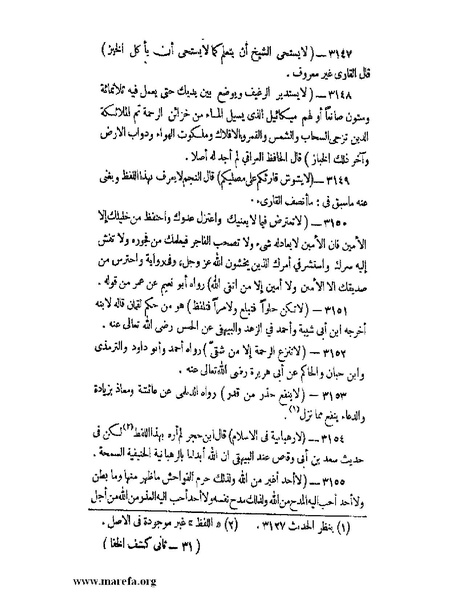 ٣١٤٧ — ( لا يستحى الشيخ أن يتعلم كما لا يستحى أن يأكل الخبز )
قال القارى غير معروف .
٣١٤٨ — ( لا يستدير الرغيف ويوضع بين يديك حتى يعمل فيه ثلاثمائة
وستون صانعاً أولهم ميكائيل الذى يسيل الماء من خزائن الرحمة ثم الملائكة
الذين تزجى السحاب والشمس والقمر والافلاك وملكوت الهواء ودواب الارض
وآخر ذلك الخباز ) قال الحافظ العراقي لم أجد له أصلا .
٣١٤٩ — (لا يشوش قارئكم على مصليكم) قال النجم لا يعرف بهذا اللفظ ويغنى
عنه ماسبق فى : ما أنصف القارىء .
٣١٥٠ — (لا تتعرض فيما لا يعنيك واعتزل عدوك واحتفظ من خليلك إلا
الأمين فان الأمين لا يعادله شىء ولا تصحب الفاجر فيعلمك من فجوره ولا تفش
إليه سرك واستشر فى أمرك الذين يخشون الله عز وجل، وفى رواية واحترس من
صديقك الا الأمين ولا أمين إلا من اتقى الله) رواه أبو نعيم عن عمر من قوله .
٣١٥١ — (لا تكن حلواً فتبلع ولا مراً فتلفظ) هو من حكم لقمان قاله لابنه
أخرجه ابن أبى شيبة وأحمد في الزهد والبيهقى عن الحسن رضى الله تعالى عنه .
٣١٥٢ — (لا تنزع الرحمة إلا من شقىّ) رواه أحمد وأبو داود والترمذى
وابن حبان والحاكم عن أبى هريرة رضى الله تعالى عنه .
٣١٥٣ — (لا ينفع حذر من قدر) رواه الديلمى عن عائشة ومعاذ بزيادة
والدعاء ينفع مما نزل(١).
٣١٥٤ — (لا رهبانية فى الاسلام) قال ابن حجر لم أره بهذا اللفظ(٢) لكن فى
حديث سعد بن أبى وقاص عند البيهقى ان الله أبدلنا بالرهبانية الحنيفية السمحة .
٣١٥٥ — (لا أحد أغير من الله ولذلك حرم الفواحش ما ظهر منها وما بطن
ولا أحد أحب اليه المدح من الله ولذلك مدح نفسه ولا أحد أحب اليه العذر من الله من أجل
(١) ينظر الحديث ٣١٢٧ . (٢) « اللفظ » غير موجودة فى الاصل .
( ٣١ — ثانى كشف الخفا )
www.marefa.org